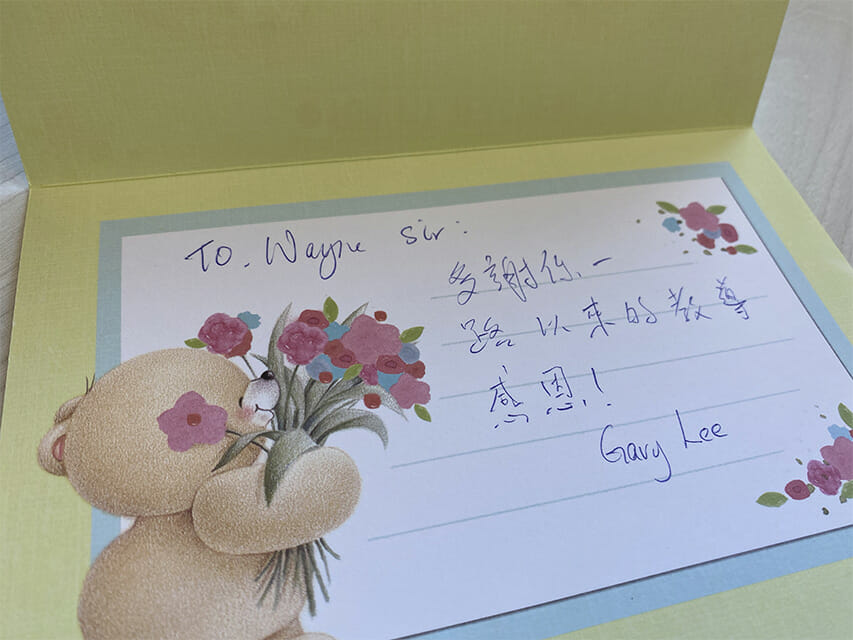 To. Wayne Sir:
多謝你、一
路以來的教導
感恩!
Gary Lee